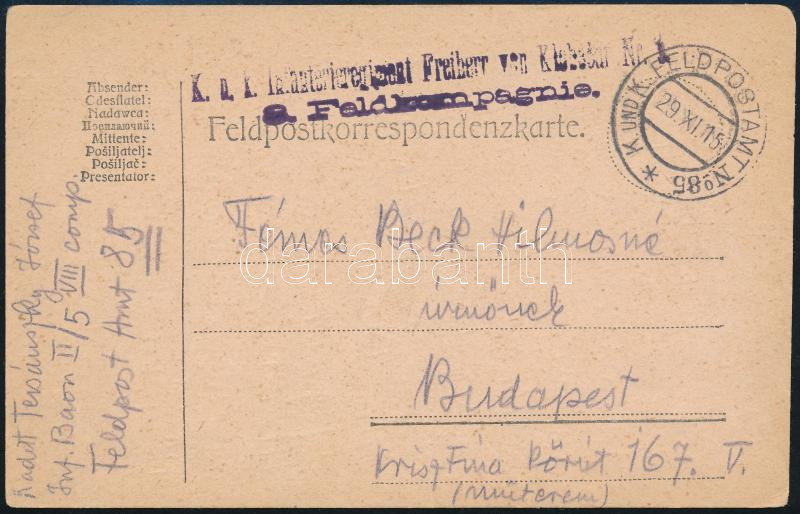 K. u. k. Infanterieregiment Freiherr von Klobučar Nr. 5
9. Feldkompagnie.
Feldpostkorrespondenzkarte.
K. UND K. FELDPOSTAMT No 85
29. XI. 15
Absender:
Odesílatel:
Nadawca:
Mittente:
Pošiljatelj:
Pošiljač:
Presentator:
Kadett Tersánszky József
Inf. Baon II/5 VIII comp.
Feldpost Amt 85
Fémes Beck Vilmosné
úrnőnek
Budapest
Krisztina körút 167. V.
(műterem)
darabanth